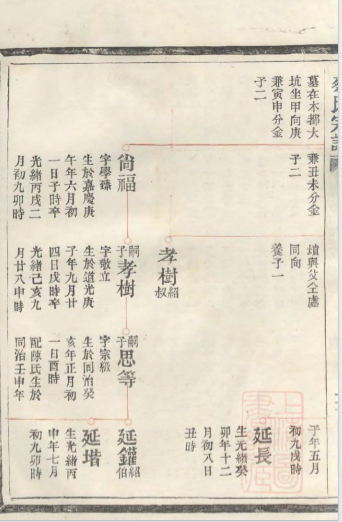 墓在木都大
坑坐甲向庚
兼寅申分金
子二
兼丑未分金
子二
墳與父仝處
同向
養子一
子年五月
初九戌時
孝樹 紹叔
延長
生光緒癸
卯年十二
月初八日
丑時
尚福
字學臻
生於嘉慶庚
午年六月初
一日子時卒
光緒丙戌二
月初九卯時
嗣子 孝樹
字敬立
生於道光庚
子年九月廿
四日戌時卒
光緒己亥九
月廿八申時
嗣子 思等
字宗級
生於同治癸
亥年正月初
一日酉時
配陳氏生於
同治壬申年
延鑵 紹伯
延堦
生光緒丙
申年七月
初九卯時